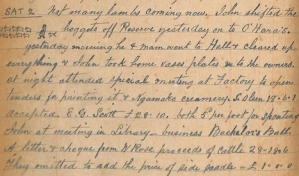 SAT 2. Not many lambs coming now. John shifted the
hoggets off Reserve yesterday on to O'Hara's.
yesterday morning he & man went to Hall & cleared up
everything & John took home vases plates &c to the owners.
at night attended special meeting at Factory to open
tenders for painting it & Ngamoko creamery. S. Olen 18-6-
accepted E. G. Scott £28-10. both 5 per for Spouting
John at meeting in Library - business Bachelor's Ball.
A letter & cheque from W Rose proceeds of Cattle 28-18-6
They omitted to add the price of side saddle - £1-0-0